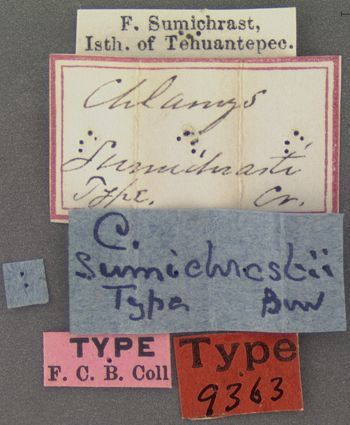 F. Sumichrast,
Isth. of Tehuantepec.
Chlamys
Sumichrasti
Type. Cr.
C.
Sumichrastii
Type Bow
TYPE
F. C. B. Coll
Type
9363